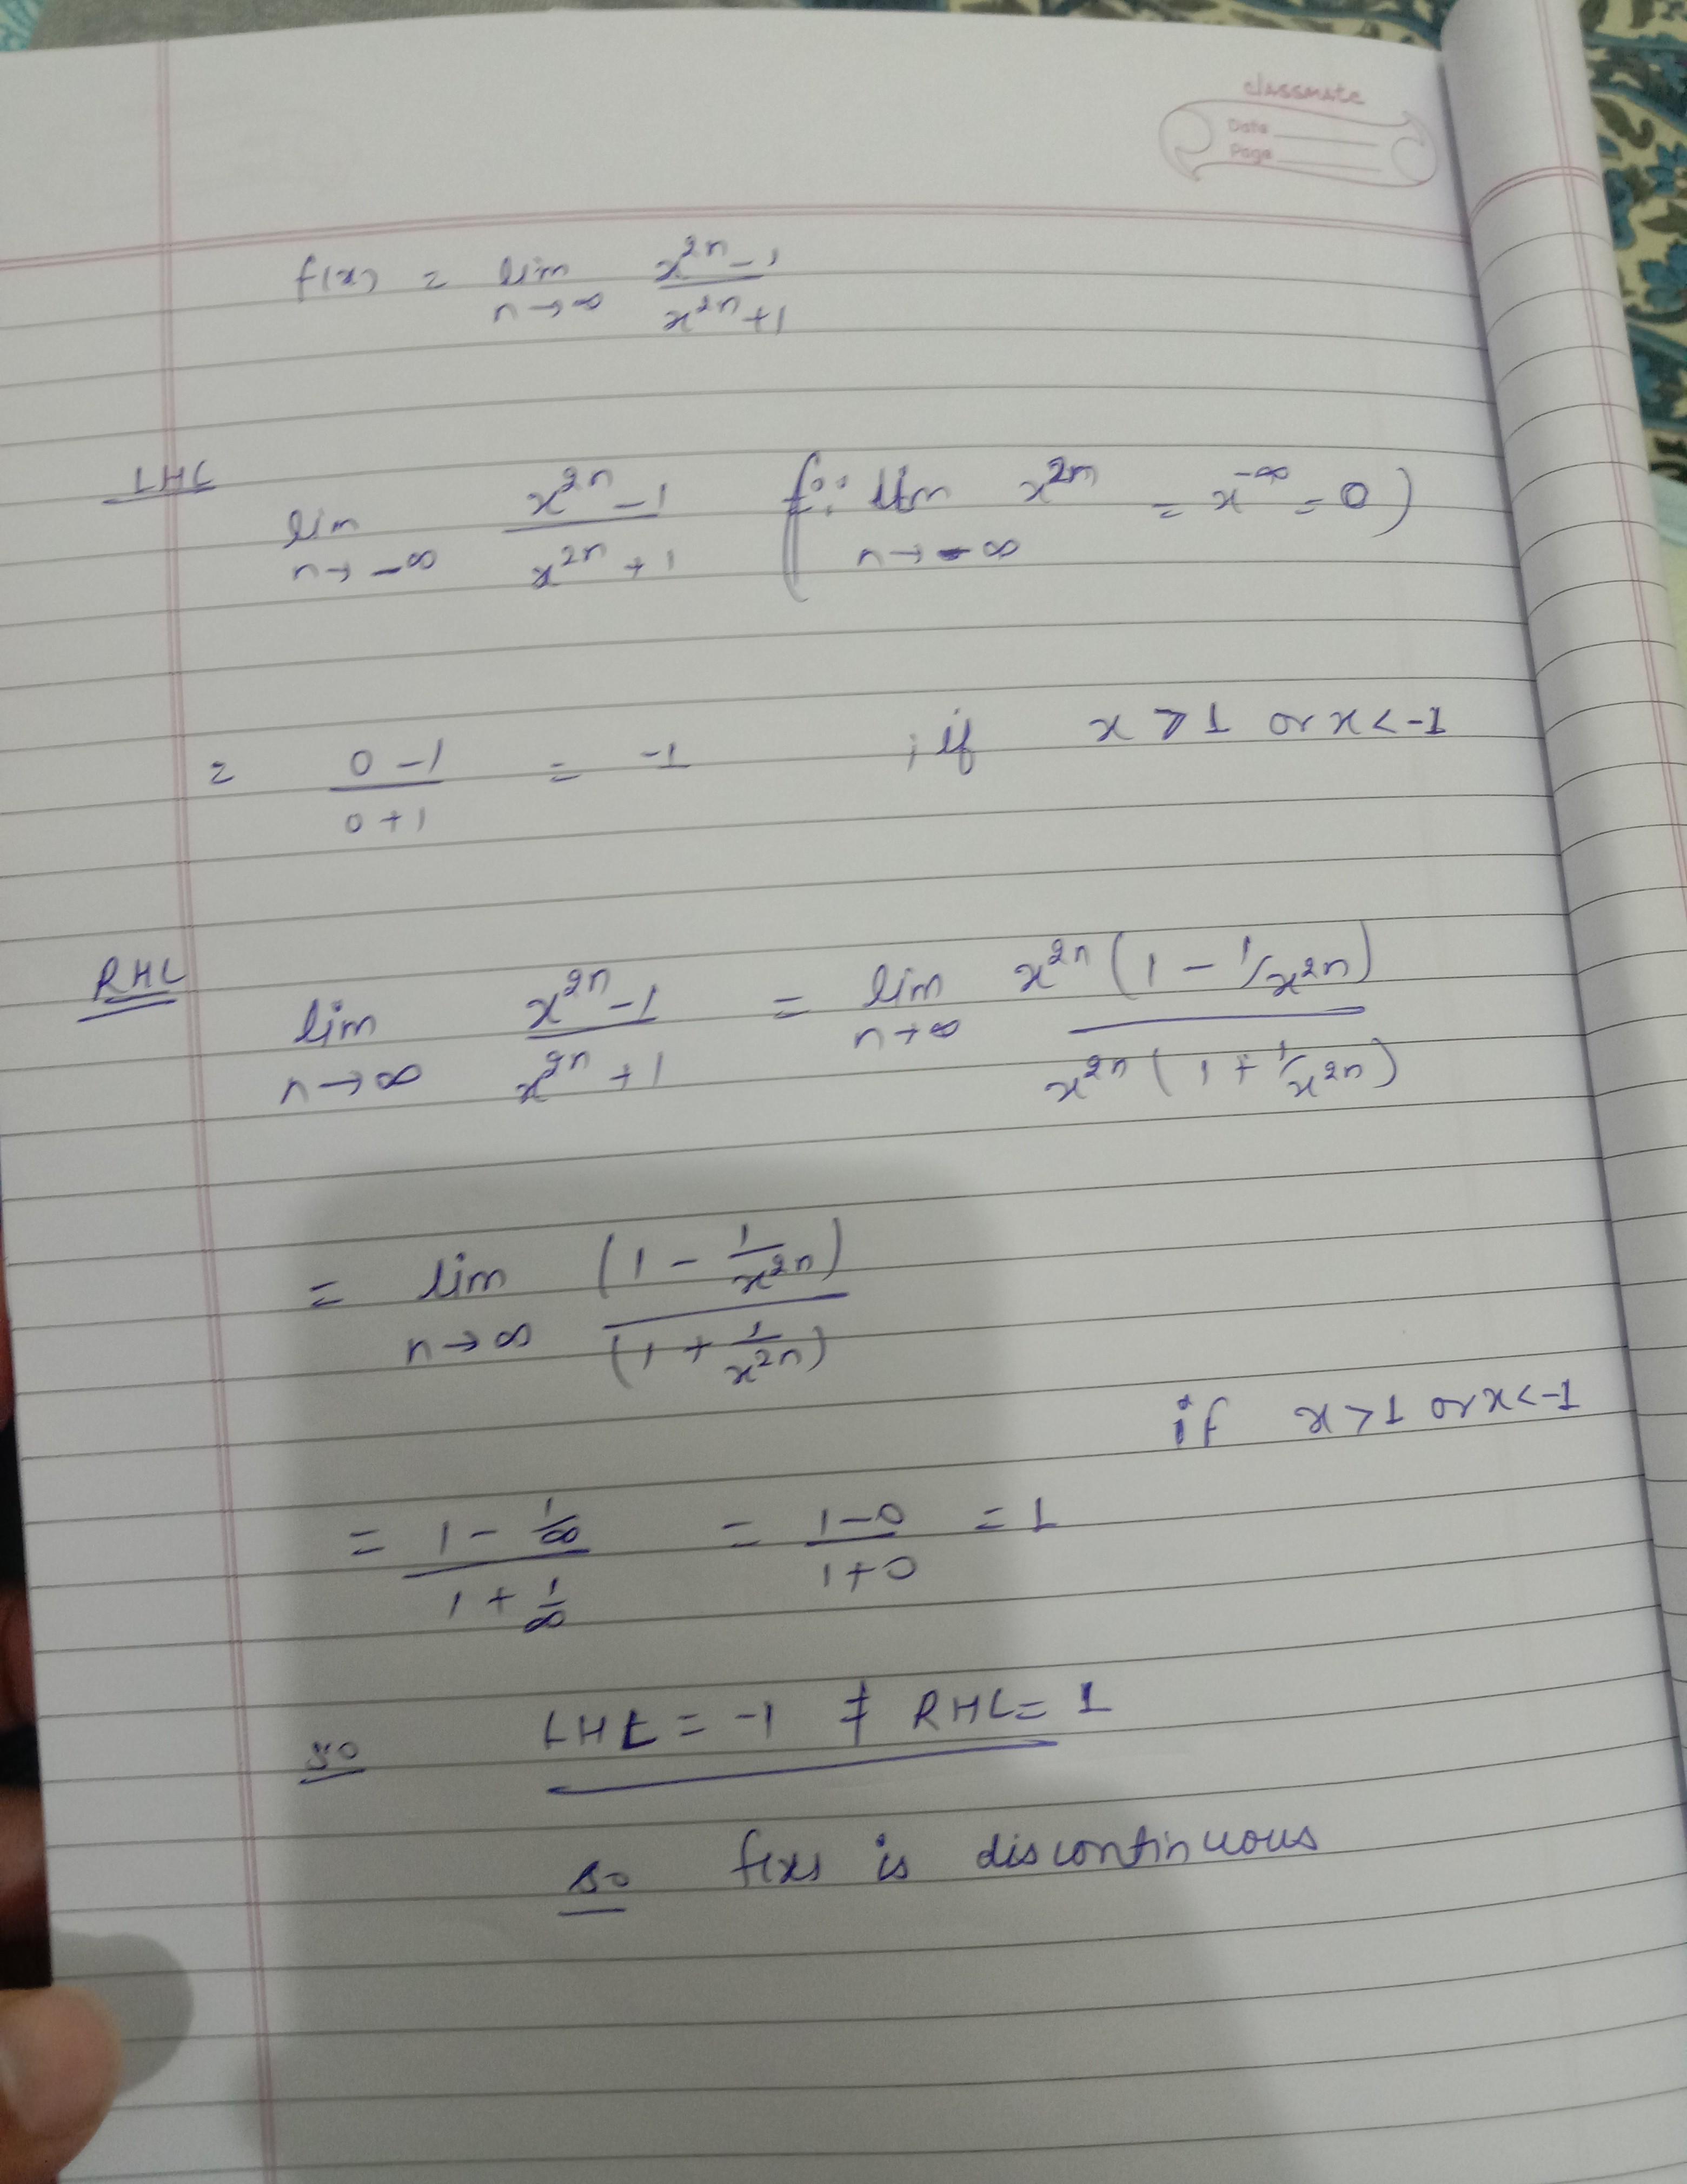 classmate
Date
Page
f(x) = lim n→∞ (x^2n - 1)/(x^2n + 1)
LHL
lim n→-∞ (x^2n - 1)/(x^2n + 1) (∵ lim n→-∞ x^2n = x^-∞ = 0)
= (0 - 1)/(0 + 1) = -1 ; if x > 1 or x < -1
RHL
lim n→∞ (x^2n - 1)/(x^2n + 1) = lim n→∞ x^2n (1 - 1/x^2n)/x^2n (1 + 1/x^2n)
= lim n→∞ (1 - 1/x^2n)/(1 + 1/x^2n)
if x > 1 or x < -1
= (1 - 1/∞)/(1 + 1/∞) = (1 - 0)/(1 + 0) = 1
so LHL = -1 ≠ RHL = 1
so f(x) is discontinuous